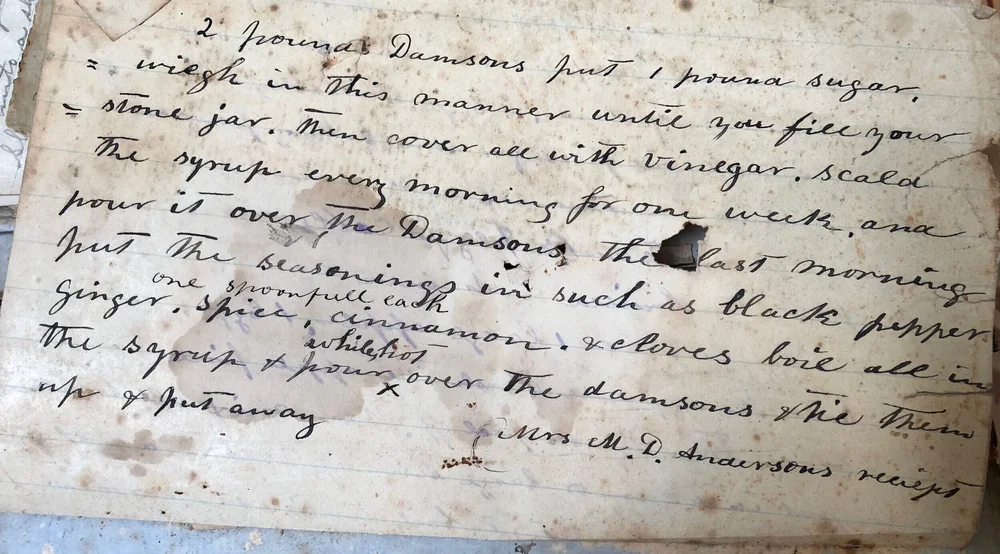 2 pounds Damsons put 1 pound sugar.
= wiegh in this manner until you fill your
= stone jar. then cover all with vinegar. scald
the syrup every morning for one week, and
pour it over the Damsons the last morning
put the seasonings in such as black pepper
ginger. spice, cinnamon. & cloves boil all in
one spoonfull each
the syrup & pour x over the damsons & tie them
while hot
up & put away
Mrs M. D. Andersons reciept